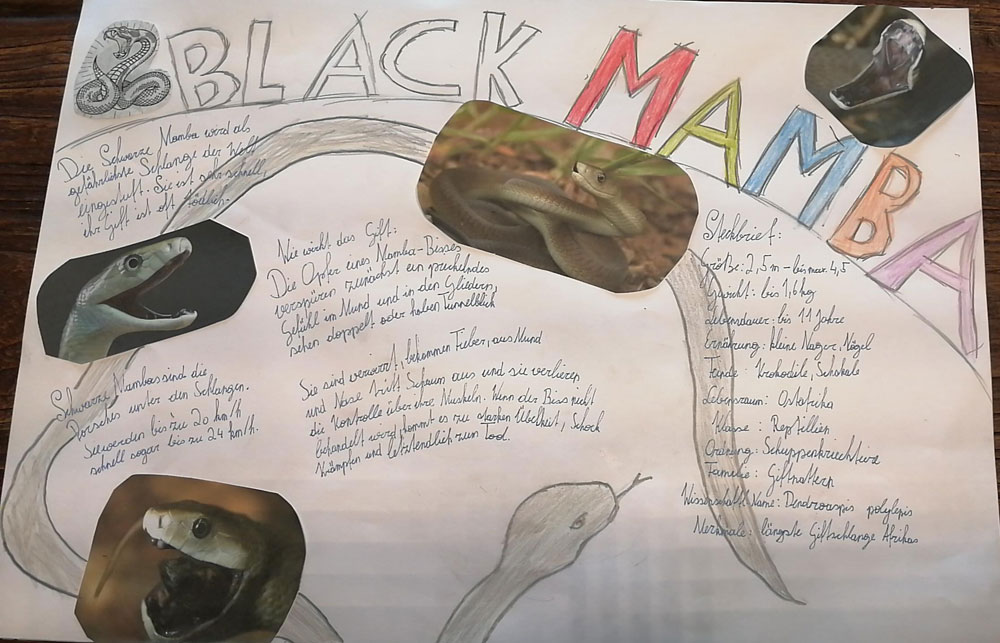 BLACK MAMBA
Die Schwarze Mamba wird als
gefährlichste Schlange der Welt
eingestuft. Sie ist sehr schnell,
ihr Gift ist oft tödlich.
Wie wirkt das Gift:
Die Opfer eines Mamba-Bisses
verspüren zunächst ein prickelndes
Gefühl im Mund und in den Gliedern,
sehen doppelt oder haben Tunnelblick
Sie sind verwirrt, bekommen Fieber, aus Mund
und Nase tritt Schaum aus und sie verlieren
die Kontrolle über ihre Muskeln. Wenn der Biss nicht
behandelt wird, kommt es zu starken Übelkeit, Schock
Krämpfen und letztendlich zum Tod.
Schwarze Mambas sind die
Porsches unter den Schlangen.
Sie werden bis zu 20 km/h
schnell sogar bis zu 24 km/h.
Steckbrief:
Größe: 2,5m - bis max. 4,5
Gewicht: bis 1,6 kg
Lebensdauer: bis 11 Jahre
Ernährung: kleine Nager, Vögel
Feinde: Krokodile, Schakale
Lebensraum: Ostafrika
Klasse: Reptilien
Ordnung: Schuppenkriechtiere
Familie: Giftnattern
Wissenschaftl. Name: Dendroaspis polylepis
Merkmale: längste Giftschlange Afrikas